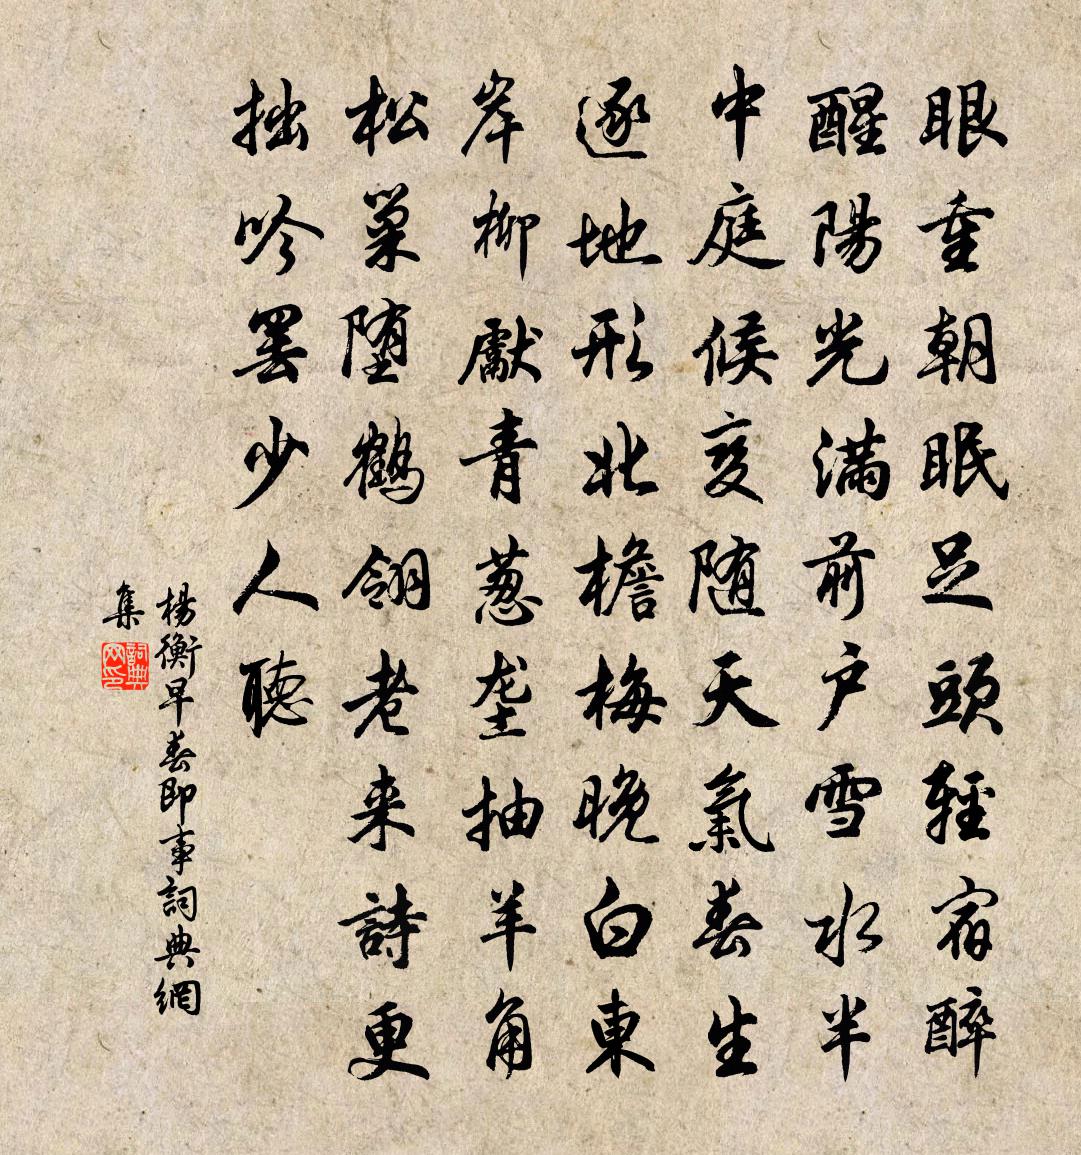 眼重朝眠足頭輕宿醉
醒陽光滿前户雪水半
中庭候变随天氣春生
逐地形北檐梅晚白東
岸柳獻青葱垄抽羊角
松巢堕鶴翎老来詩更
拙吟罢少人聽
楊衡早春即事詞典網
集
詞典
网印